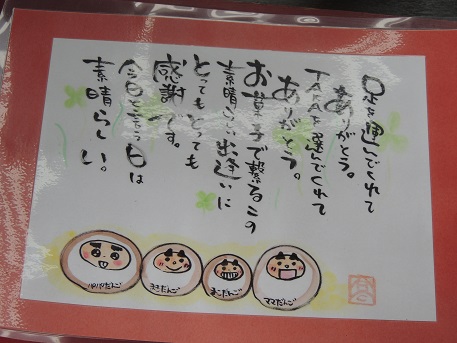 足を運んでくれて
ありがとう。
TAKAを選んでくれて
ありがとう。
お菓子で繋るこの
素晴らしい出逢いに
とってもとっても
感謝です。
今日と言う日は
素晴らしい。
パパだんご
ママだんご